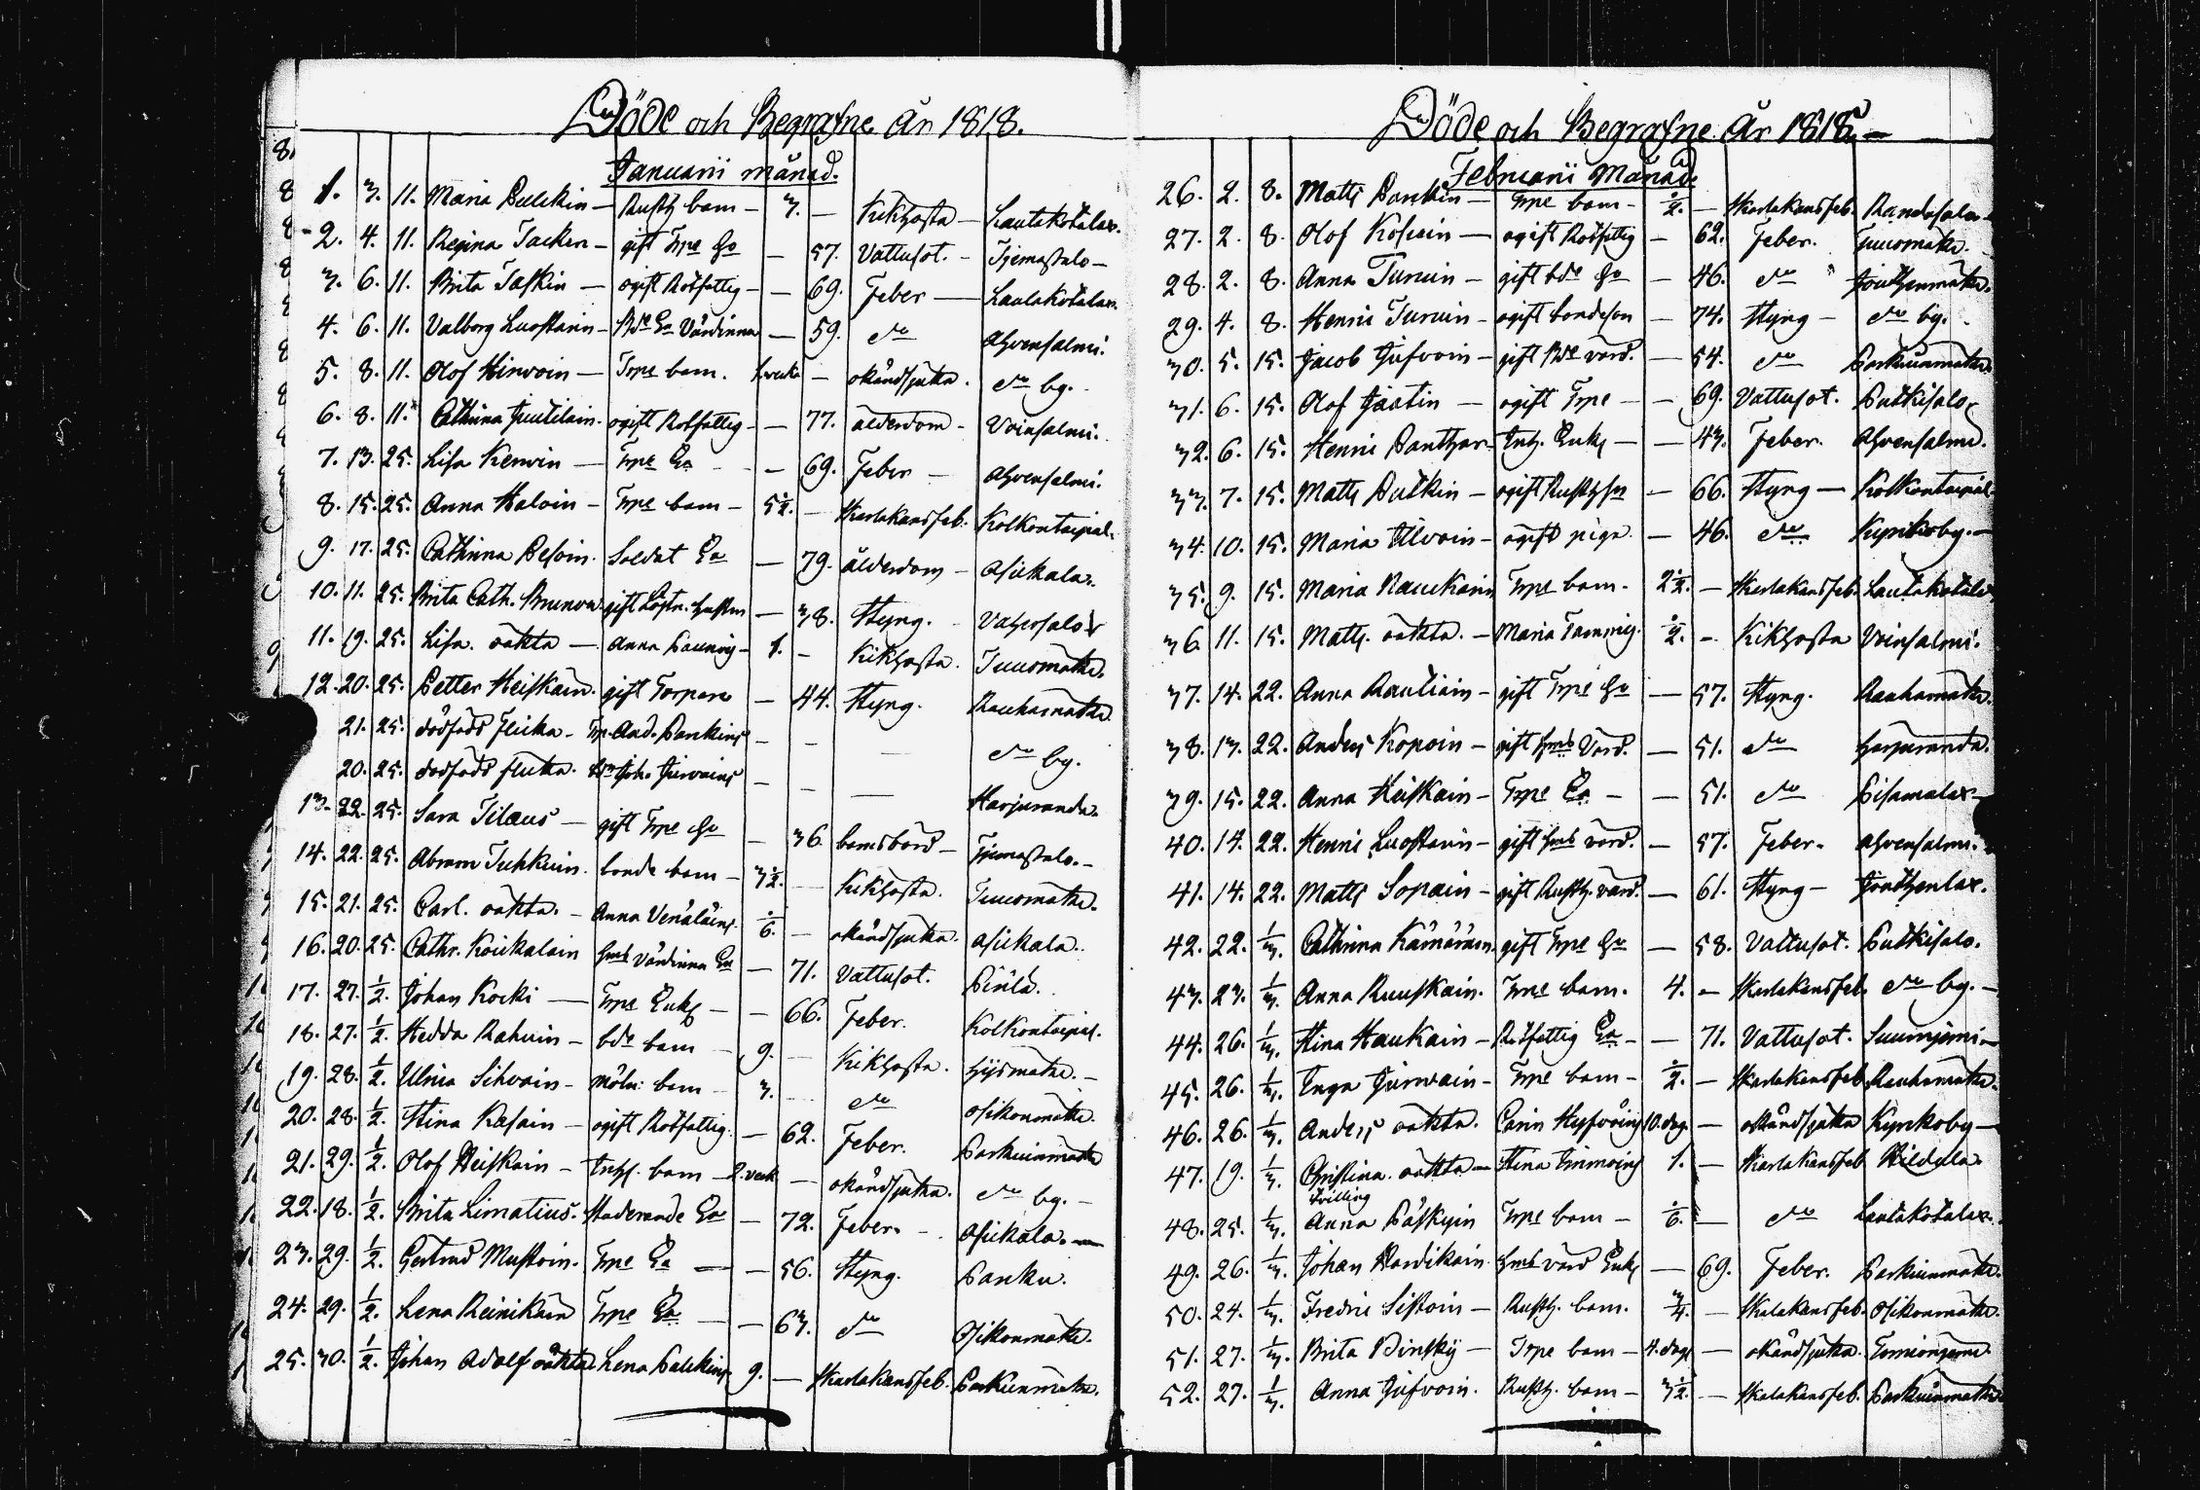 Döde och Begrafne År 1818.
Januarii månad.
1. 3. 11. Maria Pulckin — Rusth. barn — 3. — Kikhosta — Lautakotalax.
2. 4. 11. Regina Tacken — gift Trpe Hu — 57. Vattusot. — Tjemasalo —
3. 6. 11. Brita Taskin — ogift Rotfattig — — 69. Feber — Lautakotalax.
4. 6. 11. Valborg Luostarin — Bde Ea Värdinna — 59. do Ahvensalmi.
5. 8. 11. Olof Hirvoin — Trpe barn. 1. vecka — okänd sjukd. do by.
6. 8. 11. Cathrina Juutilain. ogift Rotfattig — — 77. ålderdom — Voinsalmi.
7. 13. 25. Lisa Kervin — Trpe Ea — 69. Feber — Ahvensalmi.
8. 15. 25. Anna Haloin — Trpe barn — 5½. — Skarlakansfeb. Kolkontaipal.
9. 17. 25. Cathrina Pesoin. Soldat Ea — 79. ålderdom — Asickala.
10. 11. 25. Brita Cath. gift — 38. Styng. Vahersalo
11. 19. 25. Lisa. oäkta — Anna — 1. — Kikhosta. Tuusmäki.
12. 20. 25. Petter Heiskain. gift Torpare — 44. Styng. Rauhamäki
21. 25. dödfödd flicka — Trp. And. Pankins — — — do by.
20. 25. dödfödd flicka. Joh. — — — Harjuranda.
13. 22. 25. Sara Tilaus — gift Trpe Hu — 36 barnsbörd — Tjemasalo. —
14. 22. 25. Abram Tuhkuin. bonde barn — 3½. — Kikhosta. Tuusmäki.
15. 21. 25. Carl. oäkta. — Anna Venäläin. — okänd sjukd. Asickala.
16. 20. 25. Cathr. Koukalain värdinna Ea — 71. Vattusot.
17. 27. ½. Johan Kocki — Trpe Enkl — — 66. Feber. Kolkontaipal.
18. 27. ½. Hedda Rahuin — bde barn — 9. — Kikhosta. —
19. 28. ½. Ulrica Sihvoin — barn — 3. — do Osikonmäki.
20. 28. ½. Stina Kasain — ogift Rotfattig. — 62. Feber. Parkuinmäki
21. 29. ½. Olof Heiskain — barn — 2. veck — okänd sjukd. do by. —
22. 18. ½. Brita Limatius. Ea — 72. Feber. — Asickala. —
23. 29. ½. Gertrud Mustoin. Trpe Ea — — 56. Styng. Panku.
24. 29. ½. Lena Reinikain Trpe Ea — — 63. do Osikonmäki.
25. 30. ½. Johan Adolf oäkta Lena 9. — Skarlakansfeb. Parkuinmäki.
Döde och Begrafne År 1818. —
Februarii Månad.
26. 2. 8. Matts Pankin — Trpe barn — ½. — Skarlakansfeb. Randasalo —
27. 2. 8. Olof — ogift Rotfattig — 62. Feber. Tuusmäki. —
28. 2. 8. Anna Turuin — gift bde Hu — 46. do
29. 4. 8. Henric Turuin — ogift bondeson — 74. Styng — do by.
30. 5. 15. Jacob — gift Bde värd. — 54. do Parkuinmäki
31. 6. 15. Olof — ogift Trpe — — 69. Vattusot. Putkisalo
32. 6. 15. Henric Panthzar — Enkl — — 43. Feber. Ahvensalmi.
33. 7. 15. Matts Putkin — ogift — 66. Styng — Kolkontaipal
34. 10. 15. Maria Ulvoin — ogift piga. — 46. do Kyrkoby. —
35. 9. 15. Maria Trpe barn. 2½. — Skarlakansfeb. Lautakotalax
36. 11. 15. Matts. oäkta. — Maria ½. — Kikhosta Voinsalmi.
37. 14. 22. Anna Rautiain — gift Trpe Hu — 57. Styng. Rauhamäki.
38. 13. 22. Anders Kopoin — gift Värd. — 51. do Harjuranda.
39. 15. 22. Anna Heiskain — Trpe Ea — — 51. do Pisamalax —
40. 14. 22. Henric Luostarin — gift värd. — 57. Feber. Ahvensalmi.
41. 14. 22. Matts Sopain — gift Rusth. värd. — 61. Styng —
42. 22. ⅓. Cathrina Kämäräin. gift Trpe Hu — 58. Vattusot. Putkisalo.
43. 23. ⅓. Anna Ruuskain. Trpe barn. 4. — Skarlakansfeb. do by. —
44. 26. ⅓. Stina Haukain — Rotfattig Ea — — 71. Vattusot.
45. 26. ⅓. Inga — Trpe barn — ½. — Skarlakansfeb. Rauhamäki.
46. 26. ⅓. Anders oäkta. Carin 10. dag. — okänd sjukd. Kyrkoby —
47. 19. ⅓. Christina. oäkta — Stina Immoin 1. — Skarlakansfeb
tvilling
48. 25. ⅓. Anna Trpe barn — — do Lautakotalax.
49. 26. ⅓. Johan värd Enkl — 69. Feber. Parkuinmäki.
50. 24. ⅓. Fredric Sistoin — Rusth. barn. ¾. — Skarlakansfeb. Osikonmäki.
51. 27. ⅓. Brita Pinsky — Trpe barn — 4. dag — okänd sjukd.
52. 27. ⅓. Anna Rusth. barn — 3½. — Skarlakansfeb. Parkuinmäki